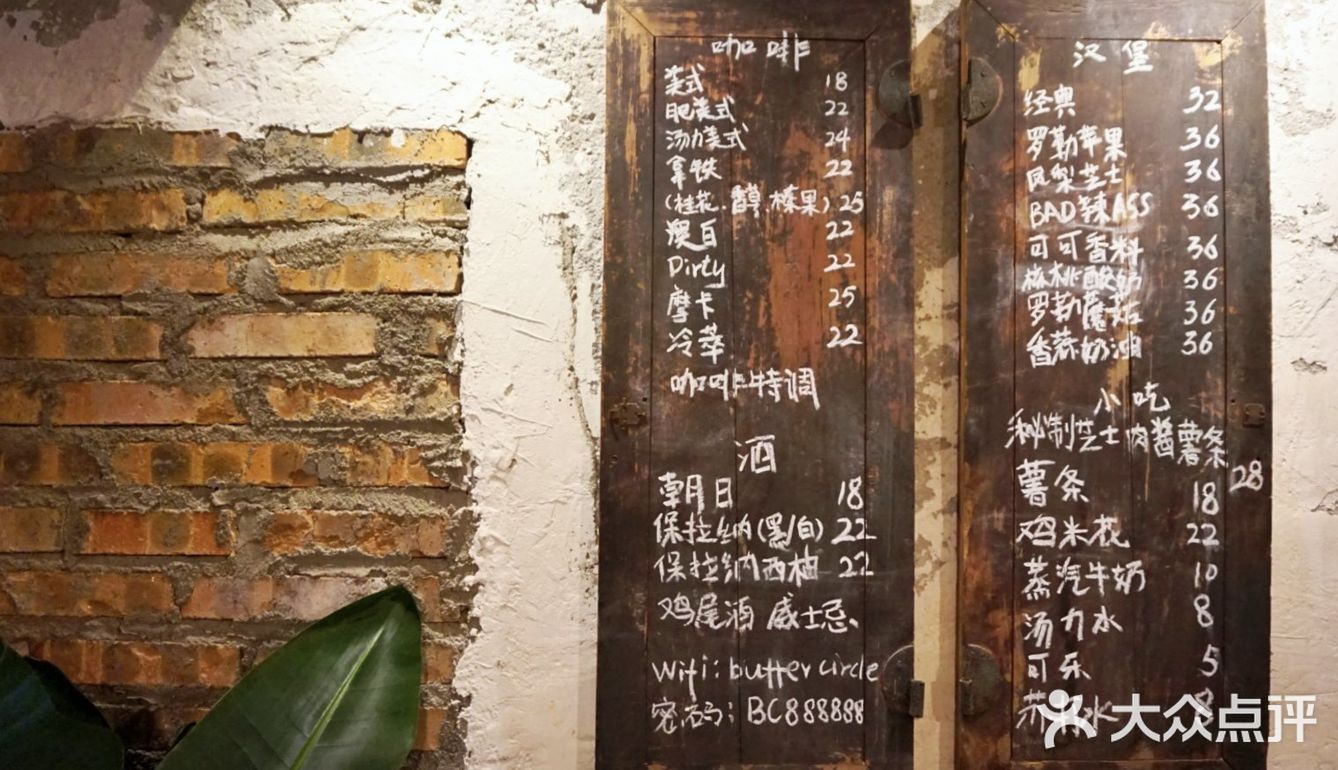 咖啡
美式 18
肥美式 22
汤力美式 24
拿铁 22
(桂花.香草.榛果) 25
澳白 22
Dirty 22
摩卡 25
冷萃 22
咖啡特调
酒
朝日 18
保拉纳(黑/白) 22
保拉纳西柚 22
鸡尾酒 威士忌
Wifi: butter circle
密码: BC888888
汉堡
经典 32
罗勒苹果 36
凤梨芝士 36
BAD辣ASS 36
可可香料 36
核桃酸奶 36
罗勒蘑菇 36
香蒜奶油 36
小吃
秘制芝士肉酱薯条 28
薯条 18
鸡米花 22
蒸汽牛奶 10
汤力水 8
可乐 5
苏 水
大众点评